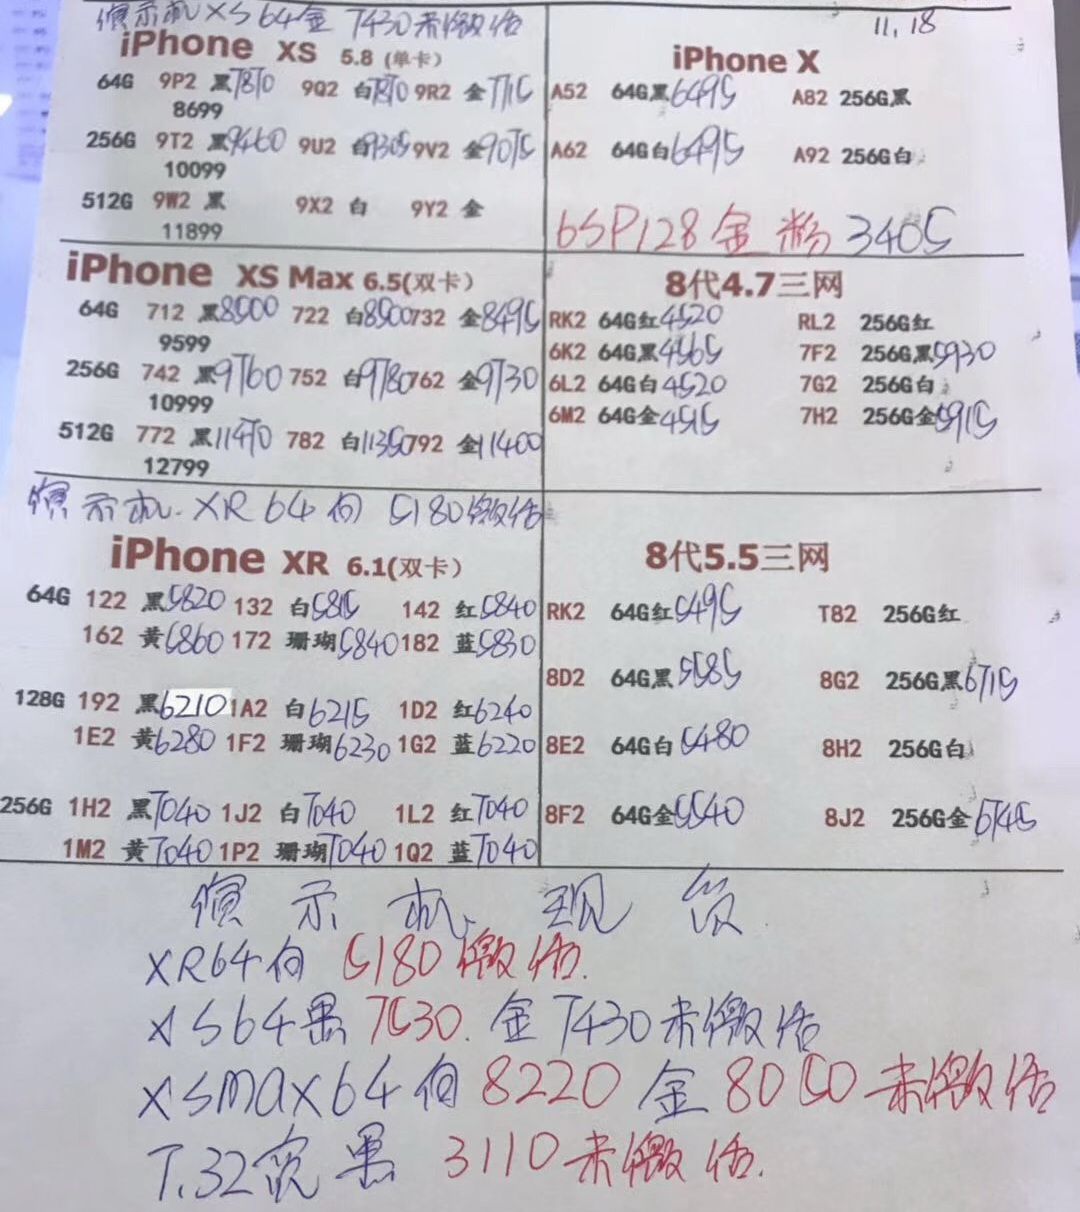 演示机 XS 64金 7430未激活 11,18
iPhone XS 5.8 (单卡)
64G 9P2 黑7870 9Q2 白7870 9R2 金7715
8699
256G 9T2 黑9460 9U2 白9305 9V2 金9075
10099
512G 9W2 黑 9X2 白 9Y2 金
11899
iPhone X
A52 64G黑6495 A82 256G黑
A62 64G白6495 A92 256G白
6SP128金 粉 3405
iPhone XS Max 6.5(双卡)
64G 712 黑8500 722 白8500 732 金8495
9599
256G 742 黑9760 752 白9780 762 金9730
10999
512G 772 黑11470 782 白11350 792 金11400
12799
8代4.7三网
RK2 64G红4520 RL2 256G红
6K2 64G黑4565 7F2 256G黑5930
6L2 64G白4520 7G2 256G白
6M2 64G金4515 7H2 256G金5915
演示机. XR 64 白 5180激活
iPhone XR 6.1(双卡)
64G 122 黑5820 132 白5815 142 红5840
162 黄5860 172 珊瑚5840 182 蓝5830
128G 192 黑6210 1A2 白6215 1D2 红6240
1E2 黄6280 1F2 珊瑚6230 1G2 蓝6220
256G 1H2 黑7040 1J2 白7040 1L2 红7040
1M2 黄7040 1P2 珊瑚7040 1Q2 蓝7040
8代5.5三网
RK2 64G红5495 T82 256G红
8D2 64G黑5585 8G2 256G黑6715
8E2 64G白5480 8H2 256G白
8F2 64G金5540 8J2 256G金6745
演 示 机 现 货
XR64白 5180激活.
XS64黑 7530. 金7430未激活
XSmax64白 8220 金 8050未激活
7.32亮黑 3110未激活.